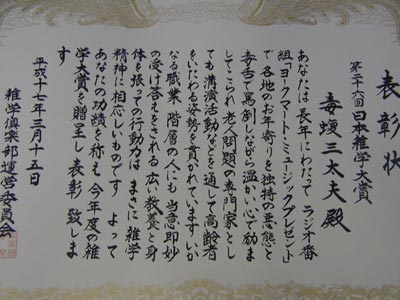 表彰状
第二十六回日本雑学大賞
毒蝮三太夫殿
あなたは長年にわたって ラジオ番
組「ヨークマート・ミュージックプレゼント」
で各地のお年寄りを独特の悪態と
毒舌で罵倒しながら温かい心で励ま
してこられ 老人問題の専門家とし
ても講演活動などを通して高齢者
をいたわる姿勢を貫かれています いか
なる職業 階層の人にも 当意即妙
の受け答えをされる広い教養と身
体を張っての行動力は まさに 雑学
精神に相応しいものです よって
あなたの功績を称え 今年度の雑
学大賞を贈呈し 表彰 致しま
す
平成十七年三月十五日
雑学倶楽部運営委員会